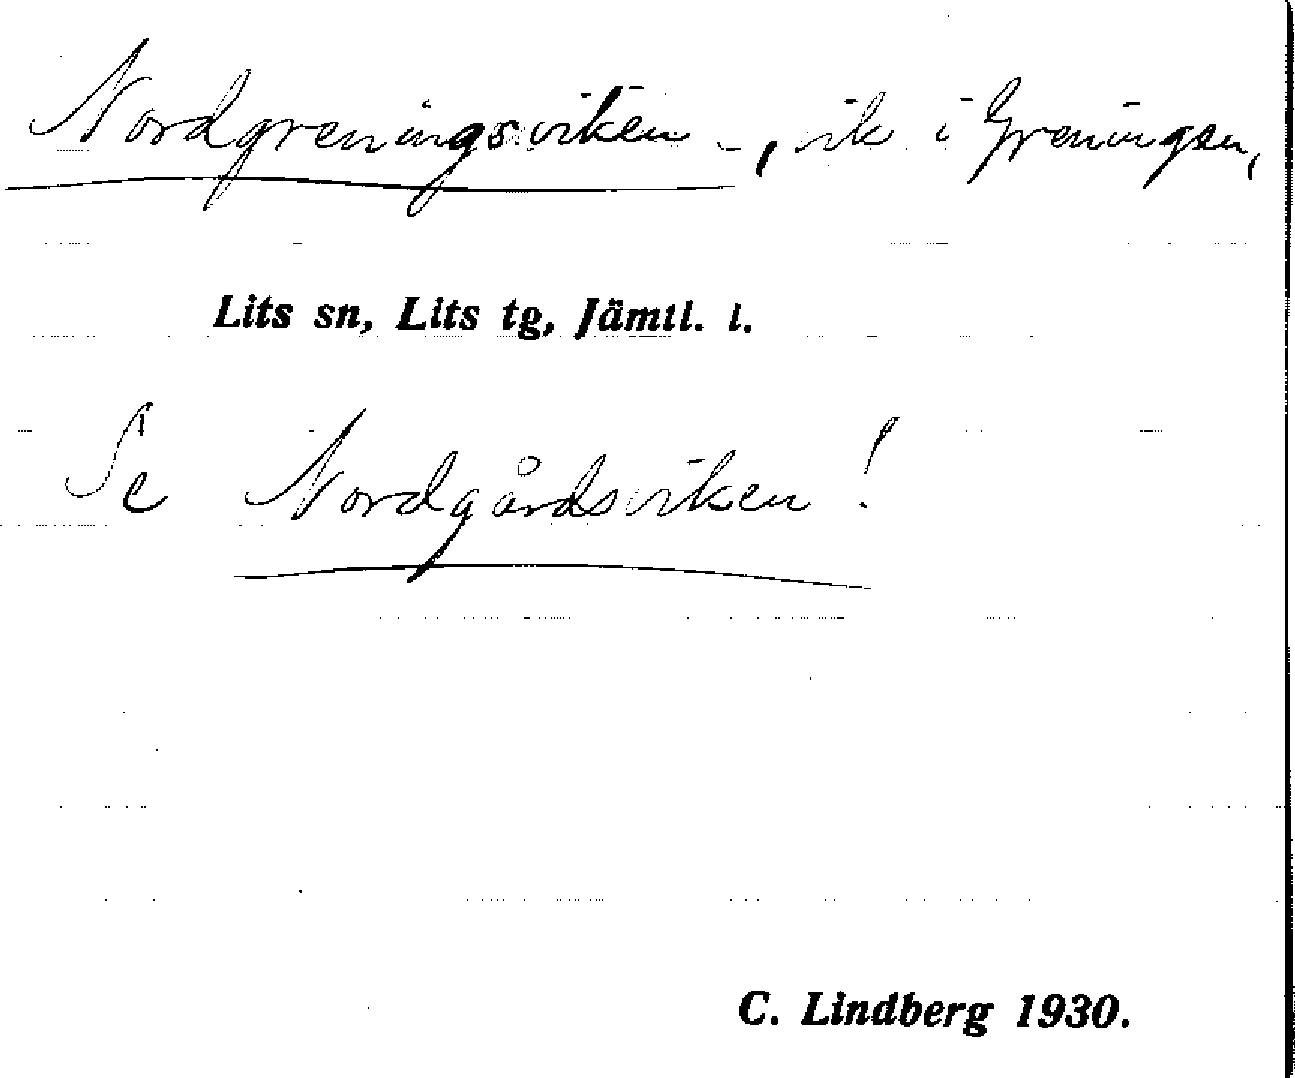 Nordgreningsviken -, vik i Greningen,
Lits sn, Lits tg, Jämtl. l.
Se Nordgårdsviken!
C. Lindberg 1930.